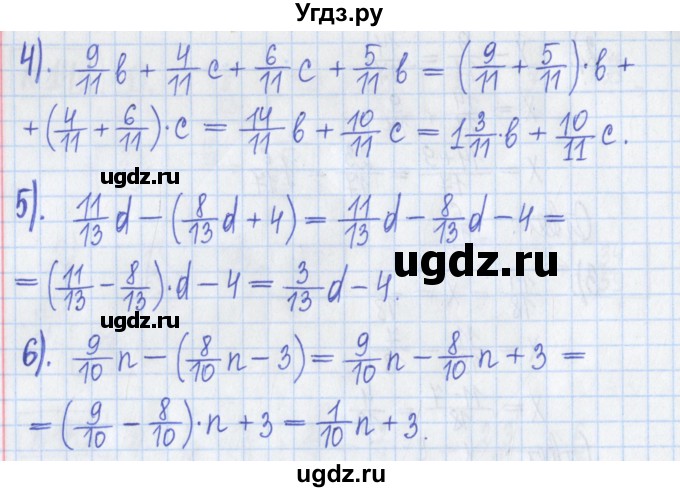 Угдз.ру
4). 9/11 в + 4/11 с + 6/11 с + 5/11 в = (9/11 + 5/11)·в +
+ (4/11 + 6/11)·с = 14/11 в + 10/11 с = 1 3/11·в + 10/11 с.
ugdz.ru
5). 11/13 d − (8/13 d + 4) = 11/13 d − 8/13 d − 4 =
ugdz.ru
= (11/13 − 8/13)·d − 4 = 3/13 d − 4.
ugdz.ru
6). 9/10 n − (8/10 n − 3) = 9/10 n − 8/10 n + 3 =
= (9/10 − 8/10)·n + 3 = 1/10 n + 3.
ugdz.ru